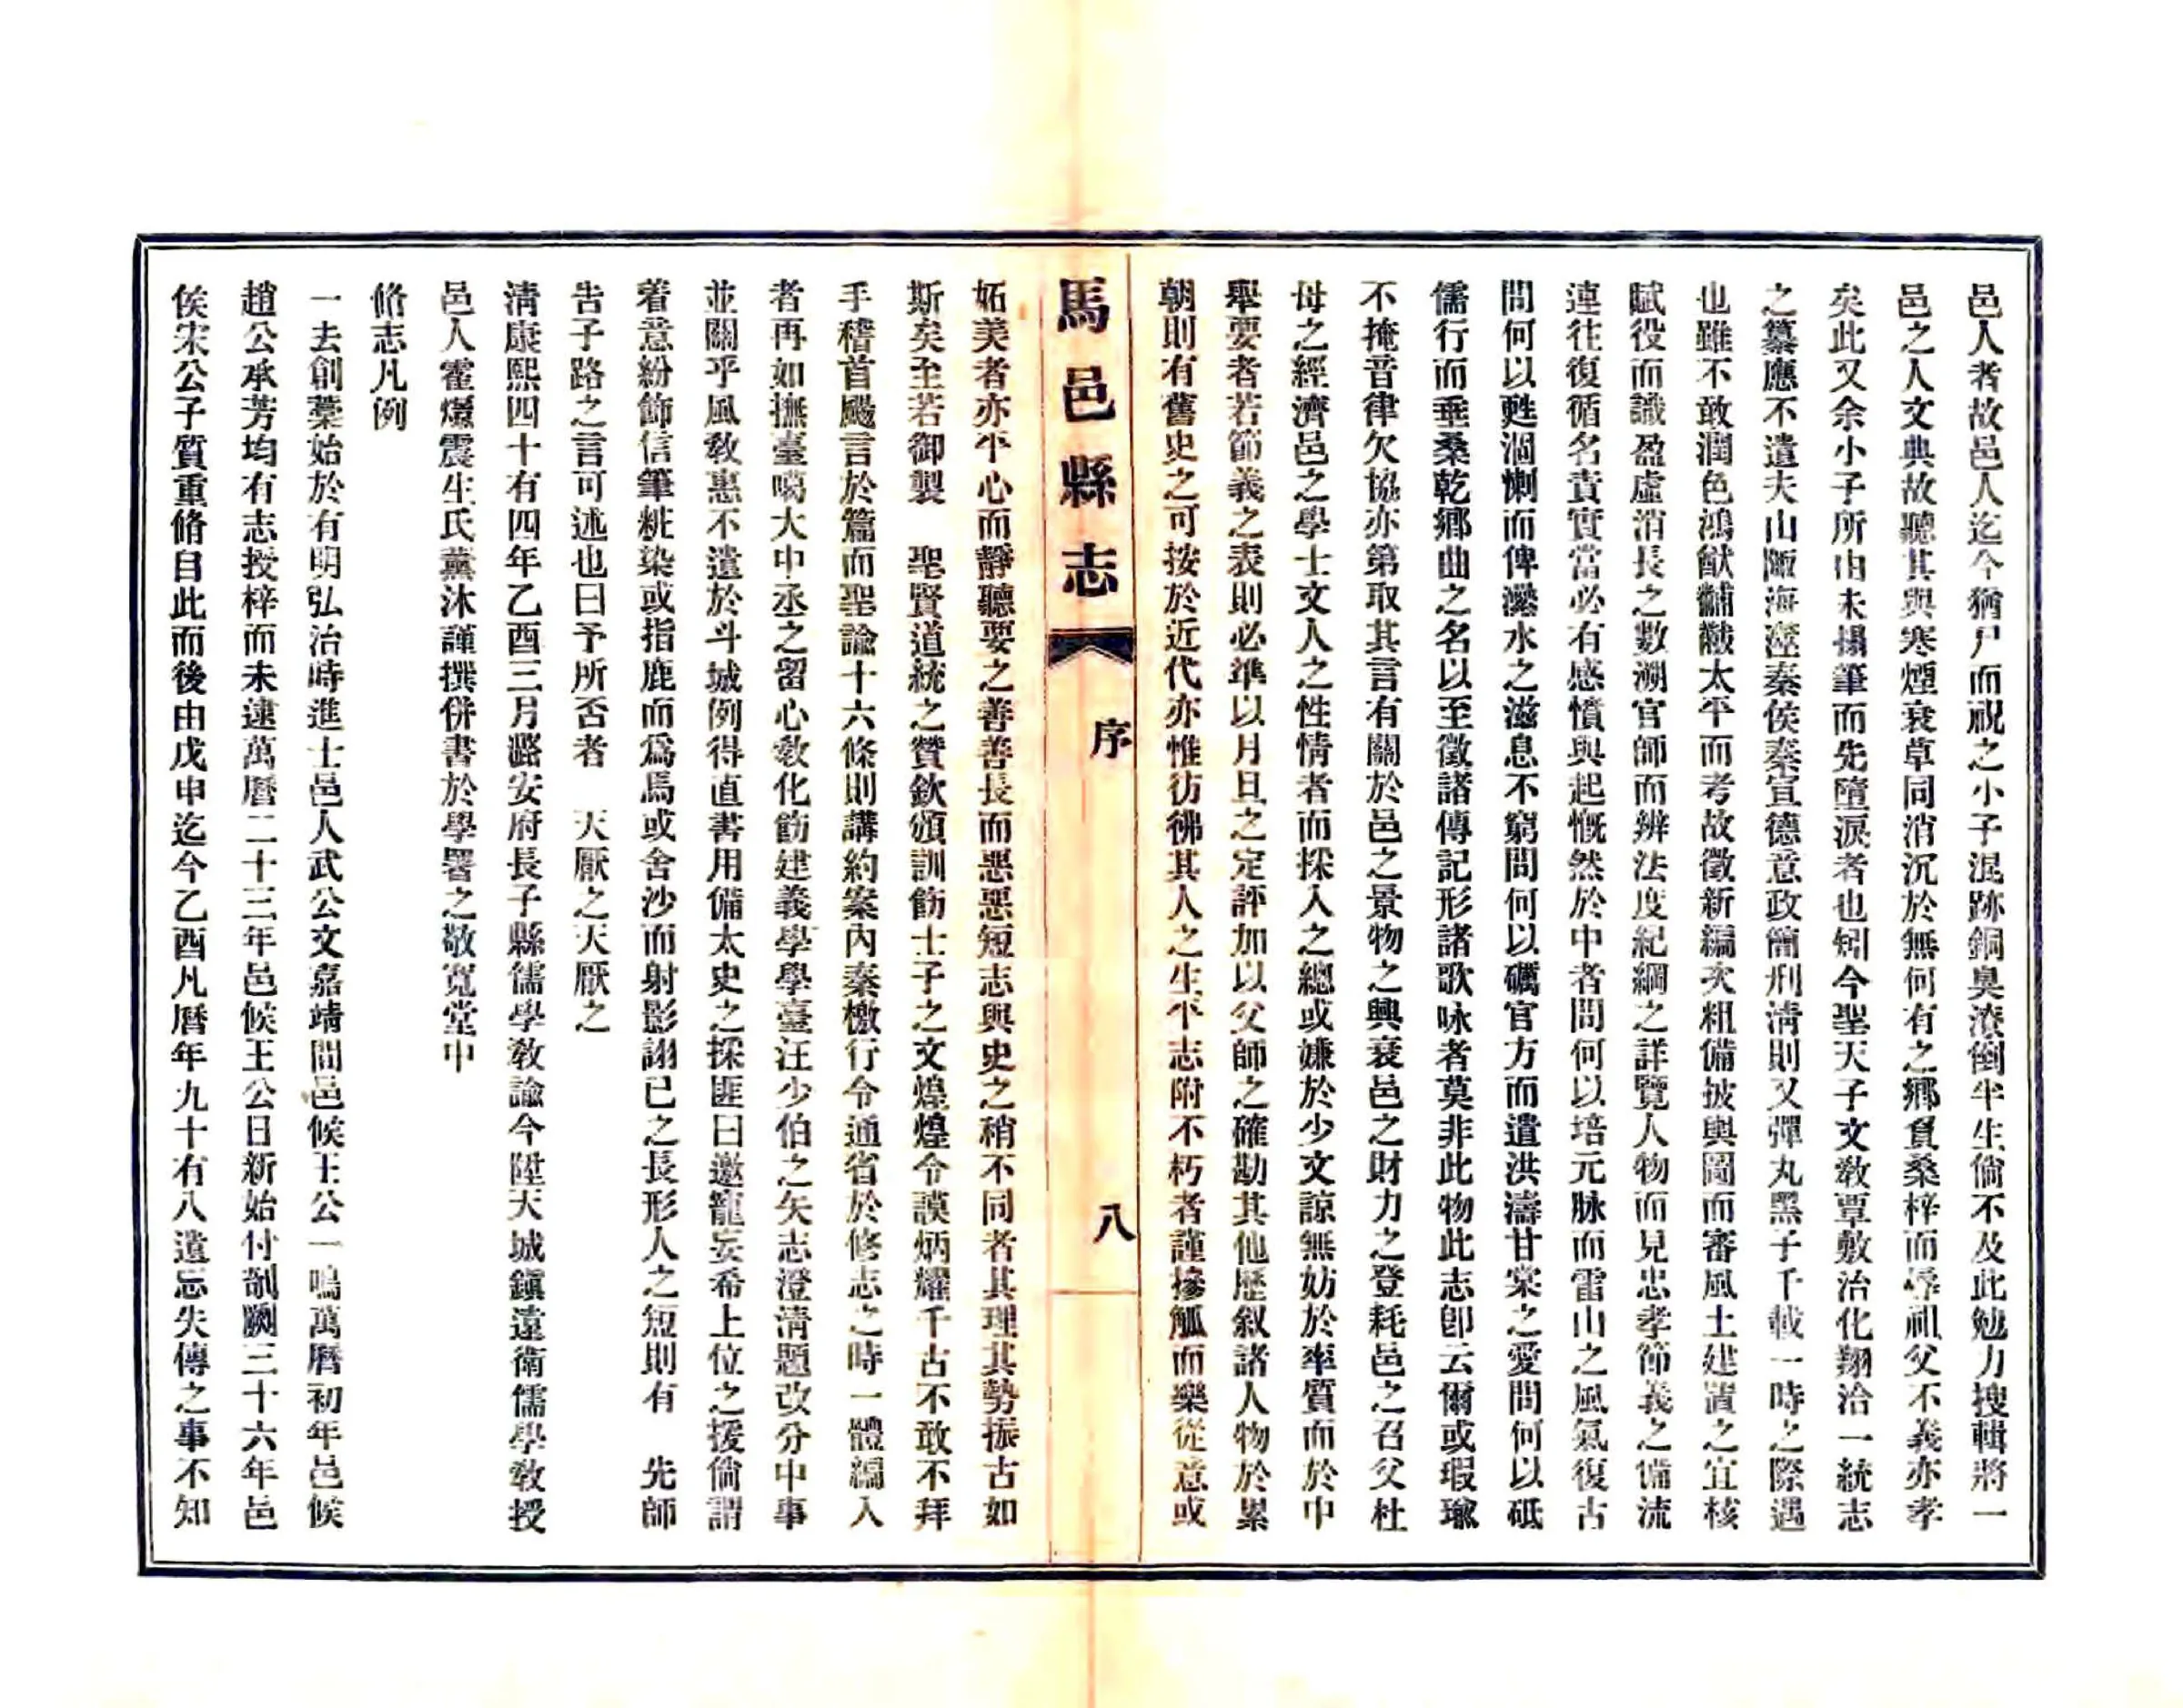 邑人者故邑人迄今猶尸而祝之小子混跡銅臭潦倒半生倘不及此勉力搜輯將一
邑之人文典故聽其與寒煙衰草同消沉於無何有之鄉負桑梓而辱祖父不義亦孝
矣此又余小子所由未搦筆而先墮淚者也矧今聖天子文敎覃敷治化翔洽一統志
之纂應不遺夫山陬海澨秦侯秦宣德意政簡刑淸則又彈丸黑子千載一時之際遇
也雖不敢潤色鴻猷黼黻太平而考故徵新編次粗備披輿圖而審風土建置之宜核
賦役而識盈虛消長之數溯官師而辨法度紀綱之詳覽人物而見忠孝節義之備流
連往復循名責實當必有感憤與起慨然於中者問何以培元脉而雷山之風氣復古
問何以甦涸惻而俾灤水之滋息不窮問何以礪官方而遺洪濤甘棠之愛問何以砥
儒行而垂桑乾鄉曲之名以至徵諸傳記形諸歌咏者莫非此物此志卽云爾或瑕瑜
不掩音律欠協亦第取其言有關於邑之景物之興衰邑之財力之登耗邑之召父杜
母之經濟邑之學士文人之性情者而採入之總或嫌於少文諒無妨於率質而於中
舉要者若節義之表則必準以月旦之定評加以父師之確勘其他歷叙諸人物於累
朝則有舊史之可按於近代亦惟彷彿其人之生平志附不朽者謹摻觚而樂從意或
馬邑縣志
序
八
妬美者亦平心而靜聽要之善善長而惡惡短志與史之稍不同者其理其勢振古如
斯矣至若御製　聖賢道統之贊欽頒訓飭士子之文煌煌令謨炳耀千古不敢不拜
手稽首颺言於篇而聖諭十六條則講約案內秦檄行令通省於修志之時一體編入
者再如撫臺噶大中丞之留心敎化飭建義學學臺汪少伯之矢志澄淸題改分中事
並關乎風敎惠不遺於斗城例得直書用備太史之採匪曰邀寵妄希上位之援倘謂
着意紛飾信筆粧染或指鹿而爲馬或舍沙而射影詡已之長形人之短則有　先師
吿子路之言可述也曰予所否者　天厭之天厭之
淸康熙四十有四年乙酉三月潞安府長子縣儒學敎諭今陞天城鎭遠衛儒學敎授
邑人霍燝震生氏薰沐謹撰併書於學署之敬寬堂中
脩志凡例
一去創藁始於有明弘治時進士邑人武公文嘉靖間邑候王公一鳴萬曆初年邑候
趙公承芳均有志授梓而未逮萬曆二十三年邑候王公日新始付剞劂三十六年邑
侯宋公子質重脩自此而後由戊申迄今乙酉凡曆年九十有八遺忘失傳之事不知